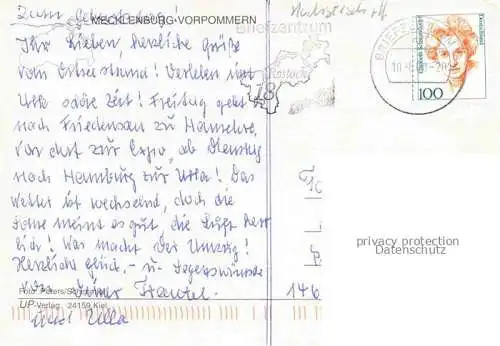 Zum Geburtstag!
MECKLENBURG-VORPOMMERN
Ihr Lieben, herzliche Grüße
vom Ostseestrand! Verleben mit
Ulla schöne Zeit! Freitag geht
nach Friedensau zu
vor dort zur Expo, ab Dienstag
nach Hamburg zur Utta! Das
Wetter ist wechselnd, doch die
Sonne meint es gut, die Luft herr
lich! Was macht der Umzug!
Herzliche Glück.- u. Segenswünsche
von Deiner
Foto: Peters/
UP-Verlag 24159 Kiel
und Ulla
Briefzentrum
Rostock
18
BRIEFZENTRUM
Deutschland
100
146
privacy protection
Datenschutz